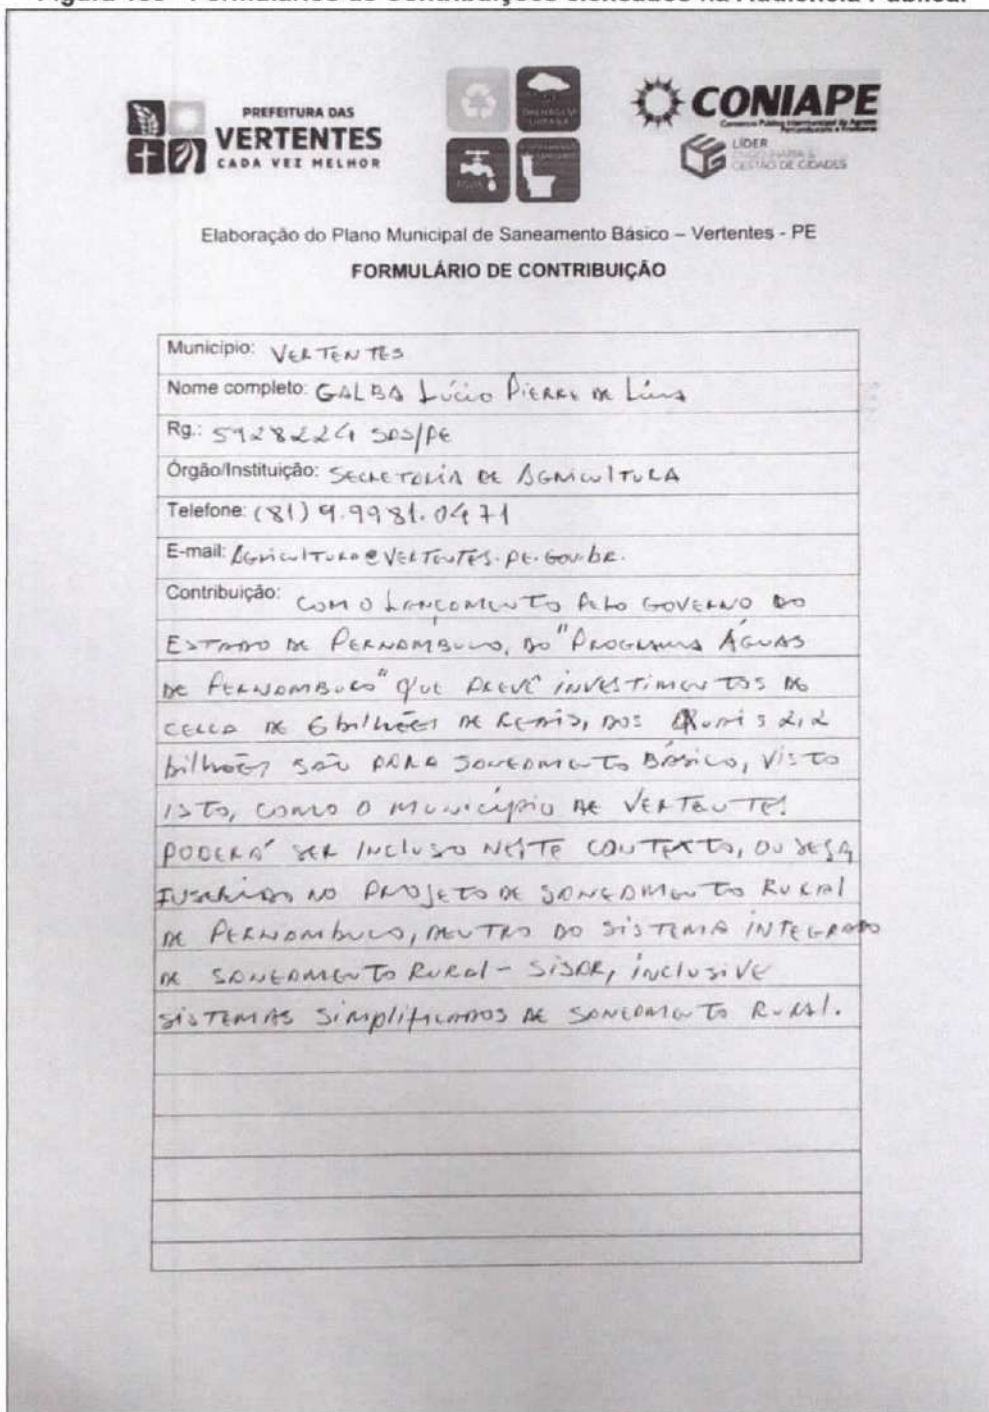 PREFEITURA DAS
VERTENTES
CADA VEZ MELHOR
DRENAGEM
URBANA
ÁGUA
CONIAPE
LÍDER
ENGENHARIA &
GESTÃO DE CIDADES
Elaboração do Plano Municipal de Saneamento Básico – Vertentes - PE
FORMULÁRIO DE CONTRIBUIÇÃO
Município: VERTENTES
Nome completo: GALBA Lúcio PIERRE DE Lima
Rg.: 5928224 SDS/PE
Órgão/Instituição: SECRETARIA DE AGRICULTURA
Telefone: (81) 9.9981.0471
E-mail: AGRICULTURA@VERTENTES.PE.GOV.BR.
Contribuição: COM O LANÇAMENTO PELO GOVERNO DO
ESTADO DE PERNAMBUCO, DO "PROGRAMA ÁGUAS
DE PERNAMBUCO" QUE PREVÊ INVESTIMENTOS DE
CERCA DE 6 bilhões DE REAIS, DOS QUAIS 2,2
bilhões SÃO PARA SANEAMENTO BÁSICO, VISTO
ISTO, COMO O MUNICÍPIO DE VERTENTES
PODERÁ SER INCLUSO NESTE CONTEXTO, OU SEJA,
INSERIDO NO PROJETO DE SANEAMENTO RURAL
DE PERNAMBUCO, DENTRO DO SISTEMA INTEGRADO
DE SANEAMENTO RURAL - SISAR, INCLUSIVE
SISTEMAS SIMPLIFICADOS DE SANEAMENTO RURAL.